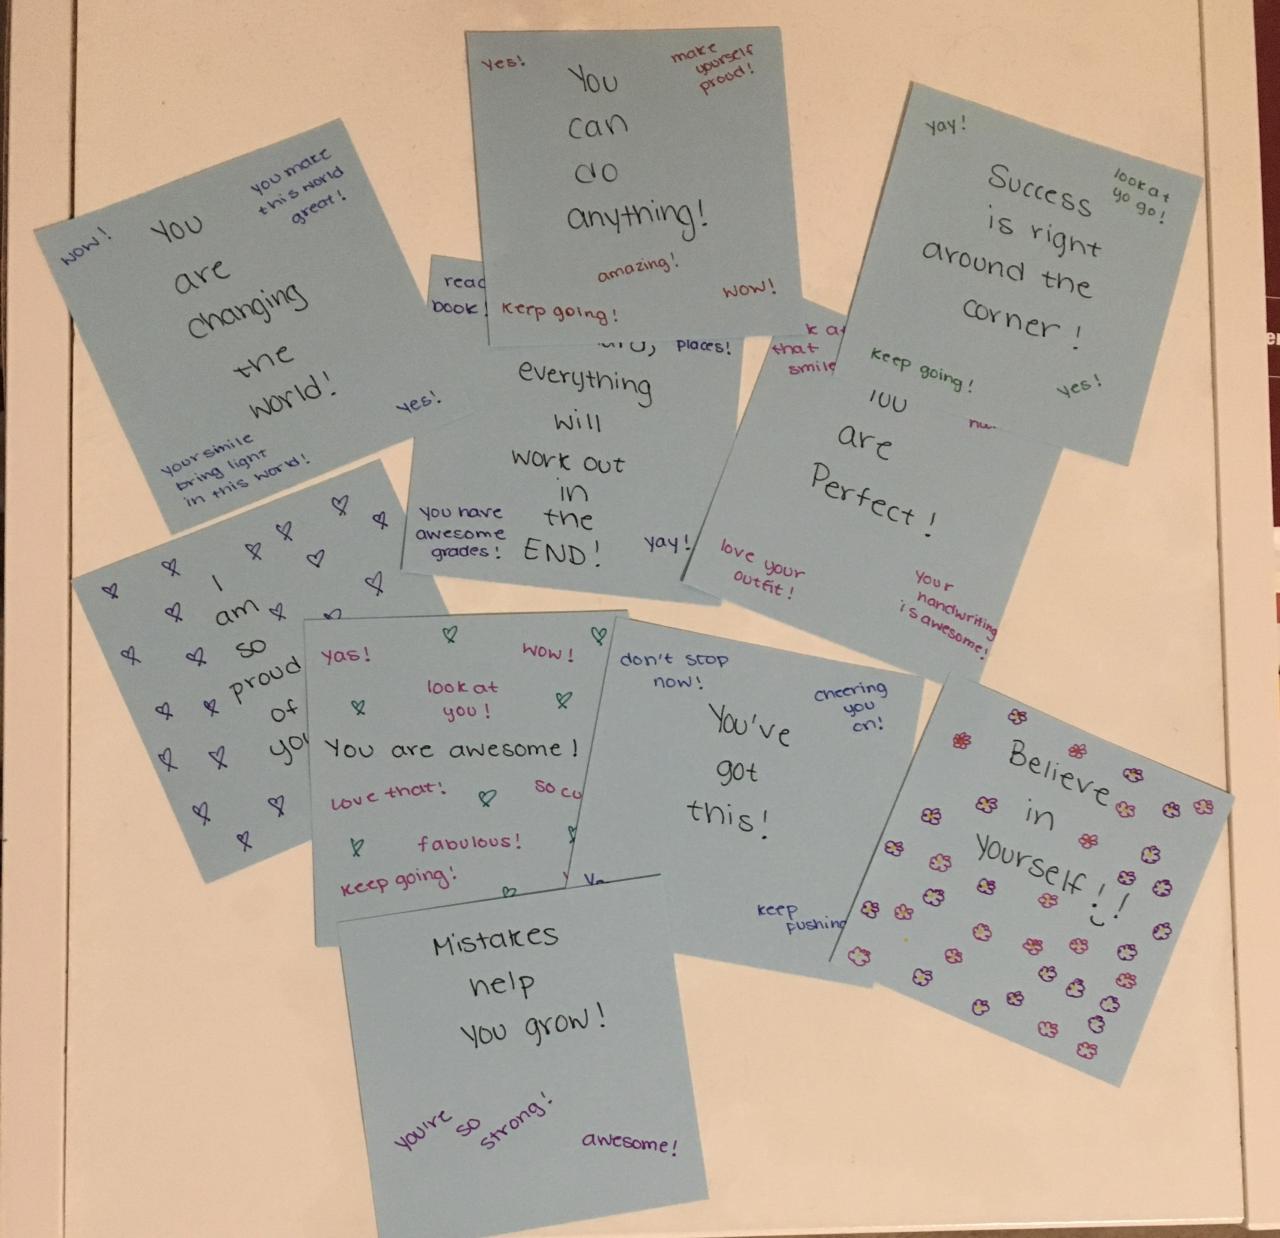 yes!
make
yourself
proud!
You
can
do
anything!
amazing!
wow!
keep going!
yay!
look at
yo go!
Success
is right
around the
corner!
keep going!
yes!
wow!
you make
this world
great!
You
are
changing
the
world!
yes!
your smile
bring light
in this world!
book!
places!
everything
will
work out
in
the
END!
you have
awesome
grades!
yay!
that
smile
are
Perfect!
love your
outfit!
your
handwriting
is awesome!
I
am
so
proud
of
yas!
wow!
look at
you!
You are awesome!
love that!
so
fabulous!
keep going!
don't stop
now!
cheering
you
on!
You've
got
this!
keep
pushing
Believe
in
yourself!!
Mistakes
help
you grow!
you're
so
strong!
awesome!